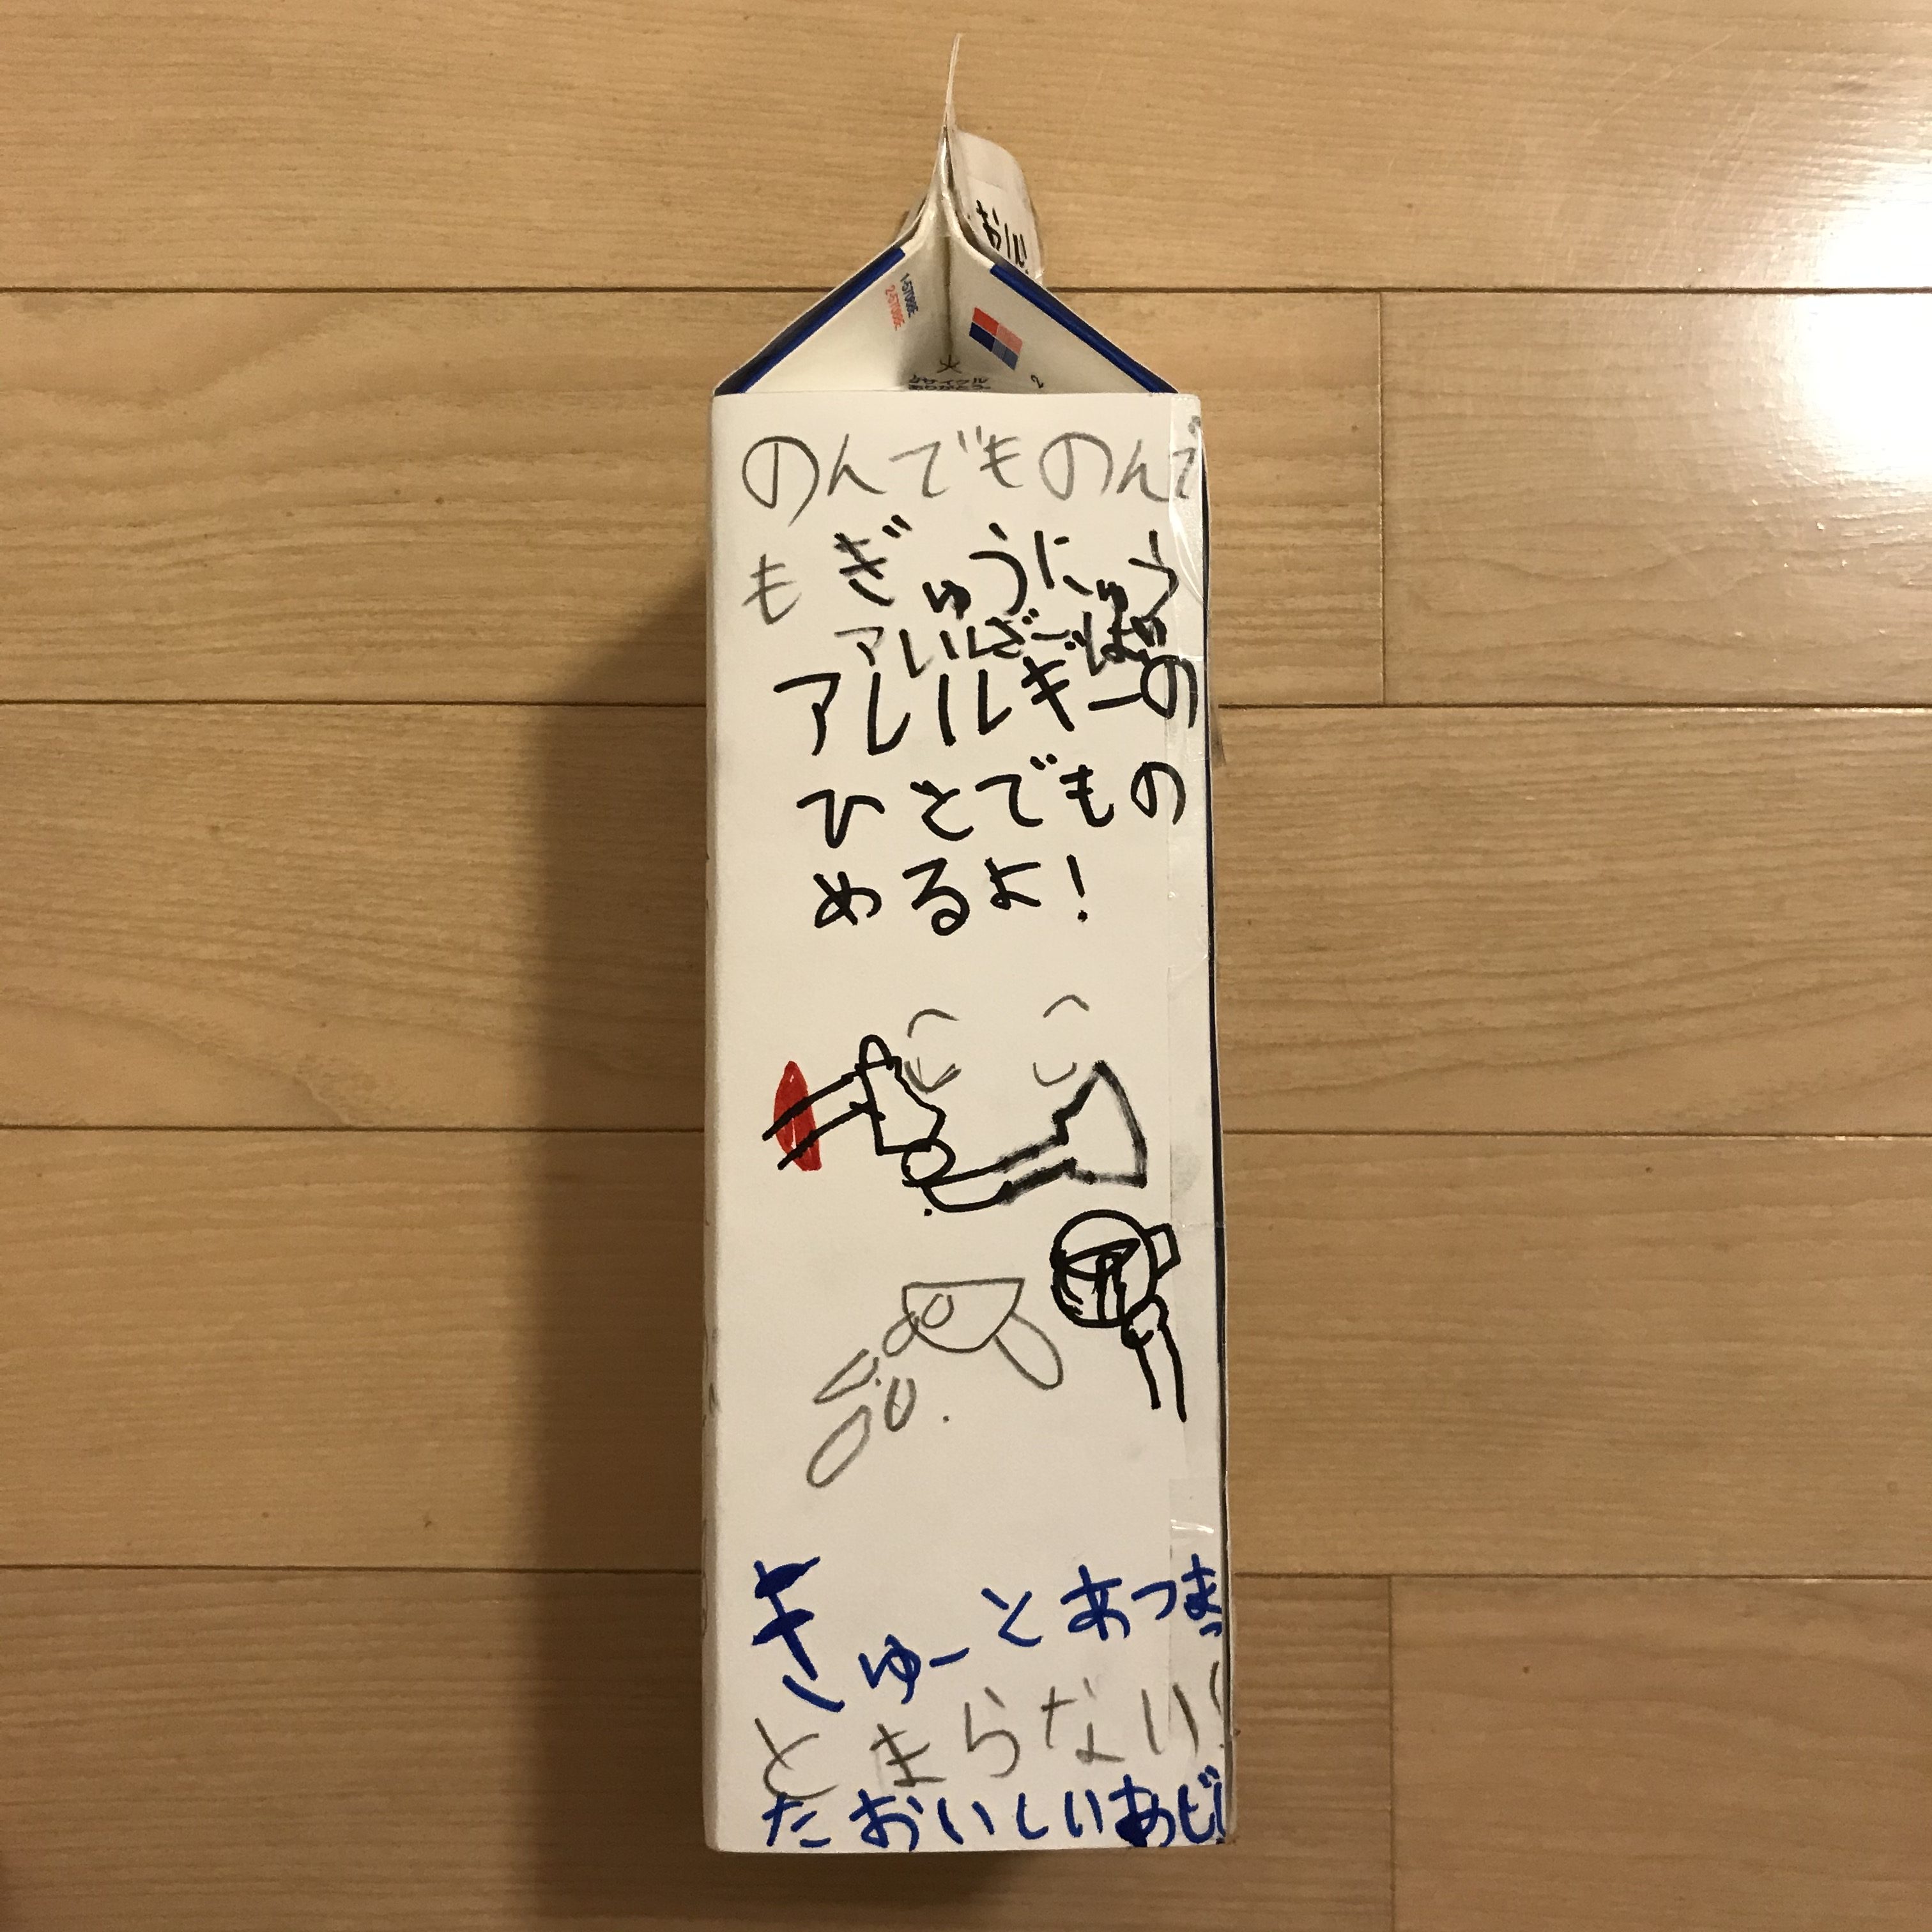 おい
1-57099E
2-57099E
火
リサイクル
ありがとう
2
のんでものんで
も ぎゅうにゅう
アレルギーの
ひとでもの
めるよ!
きゅーとあつまっ
とまらない!
たおいしいあじ!